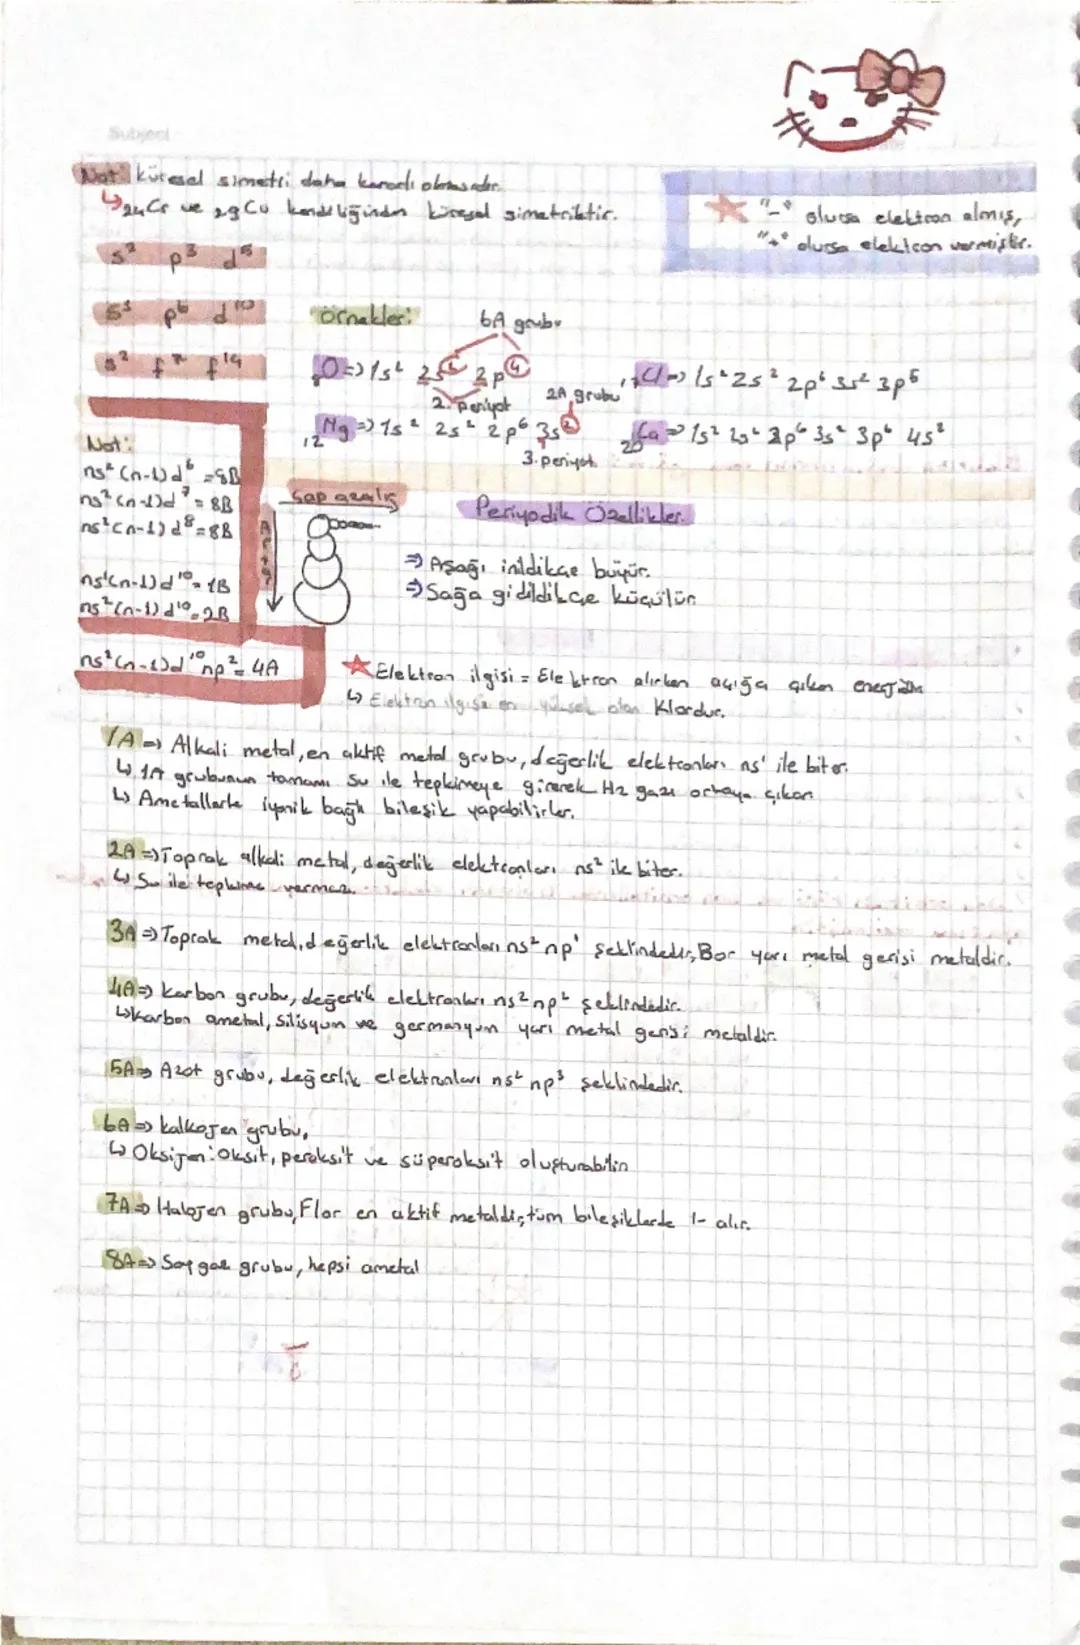 Subject
Not: küresel simetri daha kararlı olmasıdır.
↳ ₂₄Cr ve ₂₉Cu kendiliğinden küresel simetriktir.
"-" olursa elektron almış,
"+" olursa elektron vermiştir.
s² p³ d⁵
s¹ p⁶ d¹⁰
s² f⁷ f¹⁴
Örnekler:
6A grubu
₈O => 1s² 2s² 2p⁴
2. periyot
₁₇Cl => 1s² 2s² 2p⁶ 3s² 3p⁵
2A grubu
₁₂Mg => 1s² 2s² 2p⁶ 3s²
3. periyot
₂₀Ca => 1s² 2s² 2p⁶ 3s² 3p⁶ 4s²
Not:
ns² (n-1)d⁶ = 8B
ns² (n-1)d⁷ = 8B
ns² (n-1)d⁸ = 8B
ns¹(n-1)d¹⁰ = 1B
ns²(n-1)d¹⁰ = 2B
ns²(n-1)d¹⁰np² = 4A
Çap azalış
Artış
Periyodik Özellikler
=> Aşağı inildikçe büyür.
=> Sağa gidildikçe küçülür
Elektron ilgisi = Elektron alırken açığa çıkan enerjidir
↳ Elektron ilgisi en yüksek olan Klordur.
1A => Alkali metal, en aktif metal grubu, değerlik elektronları ns¹ ile biter.
↳ 1A grubunun tamamı su ile tepkimeye girerek H₂ gazı ortaya çıkar
↳ Ametallerle iyonik bağlı bileşik yapabilirler.
2A => Toprak alkali metal, değerlik elektronları ns² ile biter.
↳ Su ile tepkime vermez.
3A => Toprak metal, değerlik elektronları ns² np¹ şeklindedir, Bor yarı metal gerisi metaldir.
4A => Karbon grubu, değerlik elektronları ns² np² şeklindedir.
↳ Karbon ametal, silisyum ve germanyum yarı metal gerisi metaldir.
5A => Azot grubu, değerlik elektronları ns² np³ şeklindedir.
6A => kalkojen grubu,
↳ Oksijen: Oksit, peroksit ve süperoksit oluşturabilir
7A => Halojen grubu, Flor en aktif metaldir, tüm bileşiklerde 1- alır.
8A => Soy gaz grubu, hepsi ametal